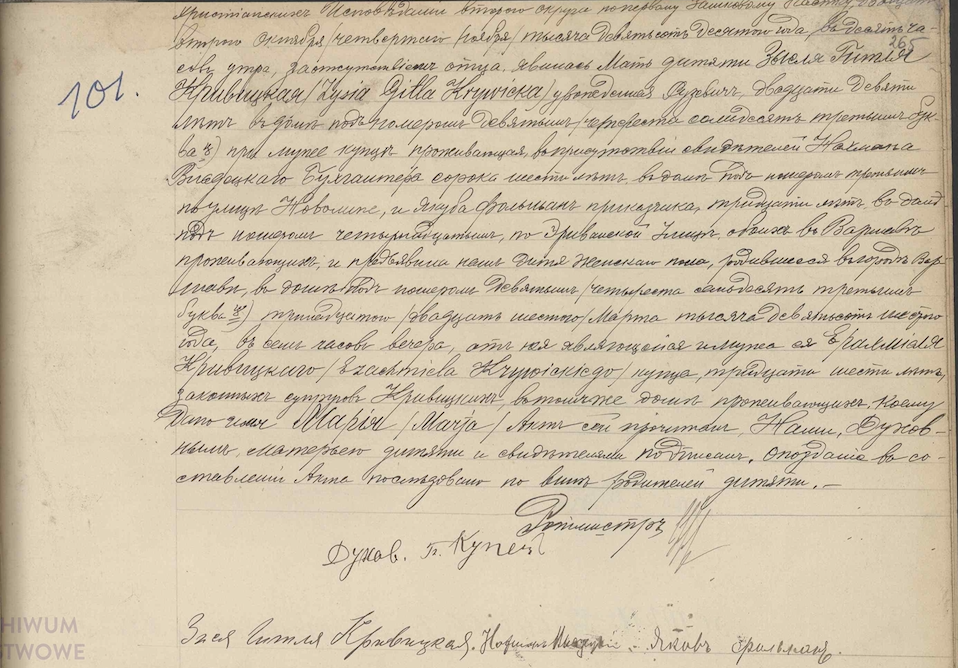 Христіанскихъ Исповѣданій второго округа
второго Октября /четвертого Ноября/ тысяча девятьсотъ десятого года, въ десять ча-
265
совъ утра, за отсутствіемъ отца, явилась Мать дитяти Зысля Гитля
101.
Кривицкая /Zysla Gitla Krywicka/ урожденная двадцати девяти
лѣтъ въ домѣ подъ номеромъ девятымъ /четыреста семидесять третьимъ бук-
ва при мужѣ купцѣ проживающая, въ присутствіи свидѣтелей Нахмана
Бухгалтера сорока шести лѣтъ, въ домѣ подъ номеромъ третьимъ
по улицѣ Новолипе, и Якуба приказчика, тридцати лѣтъ, въ домѣ
подъ номеромъ четырнадцатымъ, по улицѣ, обоихъ въ Варшавѣ
проживающихъ, и предъявила намъ дитя женскаго пола, родившееся въ городѣ Вар-
шавѣ, въ домѣ подъ номеромъ девятымъ /четыреста семдесятъ третьимъ
буква тринадцатого /двадцать шестого/ Марта тысяча девятьсотъ шестого
года, въ семь часовъ вечера, отъ нея являющейся и мужа ея
Кривицкаго купца, тридцати шести лѣтъ,
законныхъ супруговъ Кривицкихъ, въ томъ же домѣ проживающихъ, коему
дано имя Марія /Marja/ Актъ сей прочитанъ, Нами, Духов-
нымъ, матерью дитяти и свидѣтелями подписанъ, опозданіе въ со-
ставленіи Акта послѣдовало по винѣ родителей дитяти. —
Ротмистръ
Духов. Б. Купец
Зыся Гитля Кривицкая. Яковъ
HIWUM
TWOWE